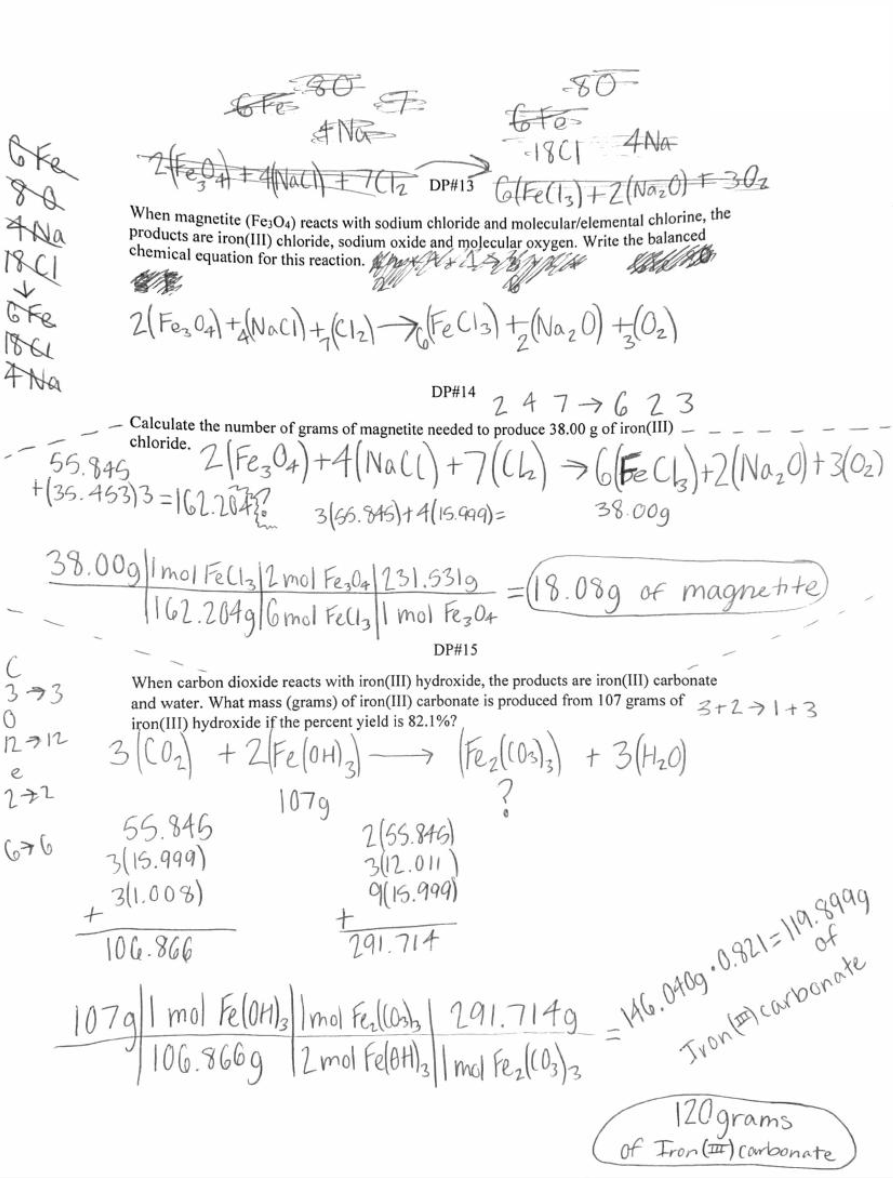 8O 8O
6Fe 7 6Fe
4Na 18Cl 4Na
2(Fe₃O₄) + 4(NaCl) + 7Cl₂ → 6(FeCl₃) + 2(Na₂O) + 3O₂
DP#13
6Fe
8O
4Na
18Cl
↓
6Fe
18Cl
4Na
When magnetite (Fe₃O₄) reacts with sodium chloride and molecular/elemental chlorine, the
products are iron(III) chloride, sodium oxide and molecular oxygen. Write the balanced
chemical equation for this reaction.
2(Fe₃O₄) + 4(NaCl) + 7(Cl₂) → 6(FeCl₃) + 2(Na₂O) + 3(O₂)
DP#14
2 4 7 → 6 2 3
Calculate the number of grams of magnetite needed to produce 38.00 g of iron(III)
chloride.
2(Fe₃O₄) + 4(NaCl) + 7(Cl₂) → 6(FeCl₃) + 2(Na₂O) + 3(O₂)
55.845
+(35.453)3 = 162.204
3(55.845) + 4(15.999) =
38.00g
38.00g | 1 mol FeCl₃ | 2 mol Fe₃O₄ | 231.531g
162.204g | 6 mol FeCl₃ | 1 mol Fe₃O₄
= 18.08g of magnetite
DP#15
When carbon dioxide reacts with iron(III) hydroxide, the products are iron(III) carbonate
and water. What mass (grams) of iron(III) carbonate is produced from 107 grams of
iron(III) hydroxide if the percent yield is 82.1%?
3+2 → 1+3
C
3 → 3
O
12 → 12
e
2 → 2
6 → 6
3(CO₂) + 2(Fe(OH)₃) → (Fe₂(CO₃)₃) + 3(H₂O)
107g ?
55.845
3(15.999)
+ 3(1.008)
106.866
2(55.845)
3(12.011)
+ 9(15.999)
291.714
107g | 1 mol Fe(OH)₃ | 1 mol Fe₂(CO₃)₃ | 291.714g
106.866g | 2 mol Fe(OH)₃ | 1 mol Fe₂(CO₃)₃
= 146.040g · 0.821 = 119.899g
of
Iron(III) carbonate
120 grams
of Iron(III) carbonate